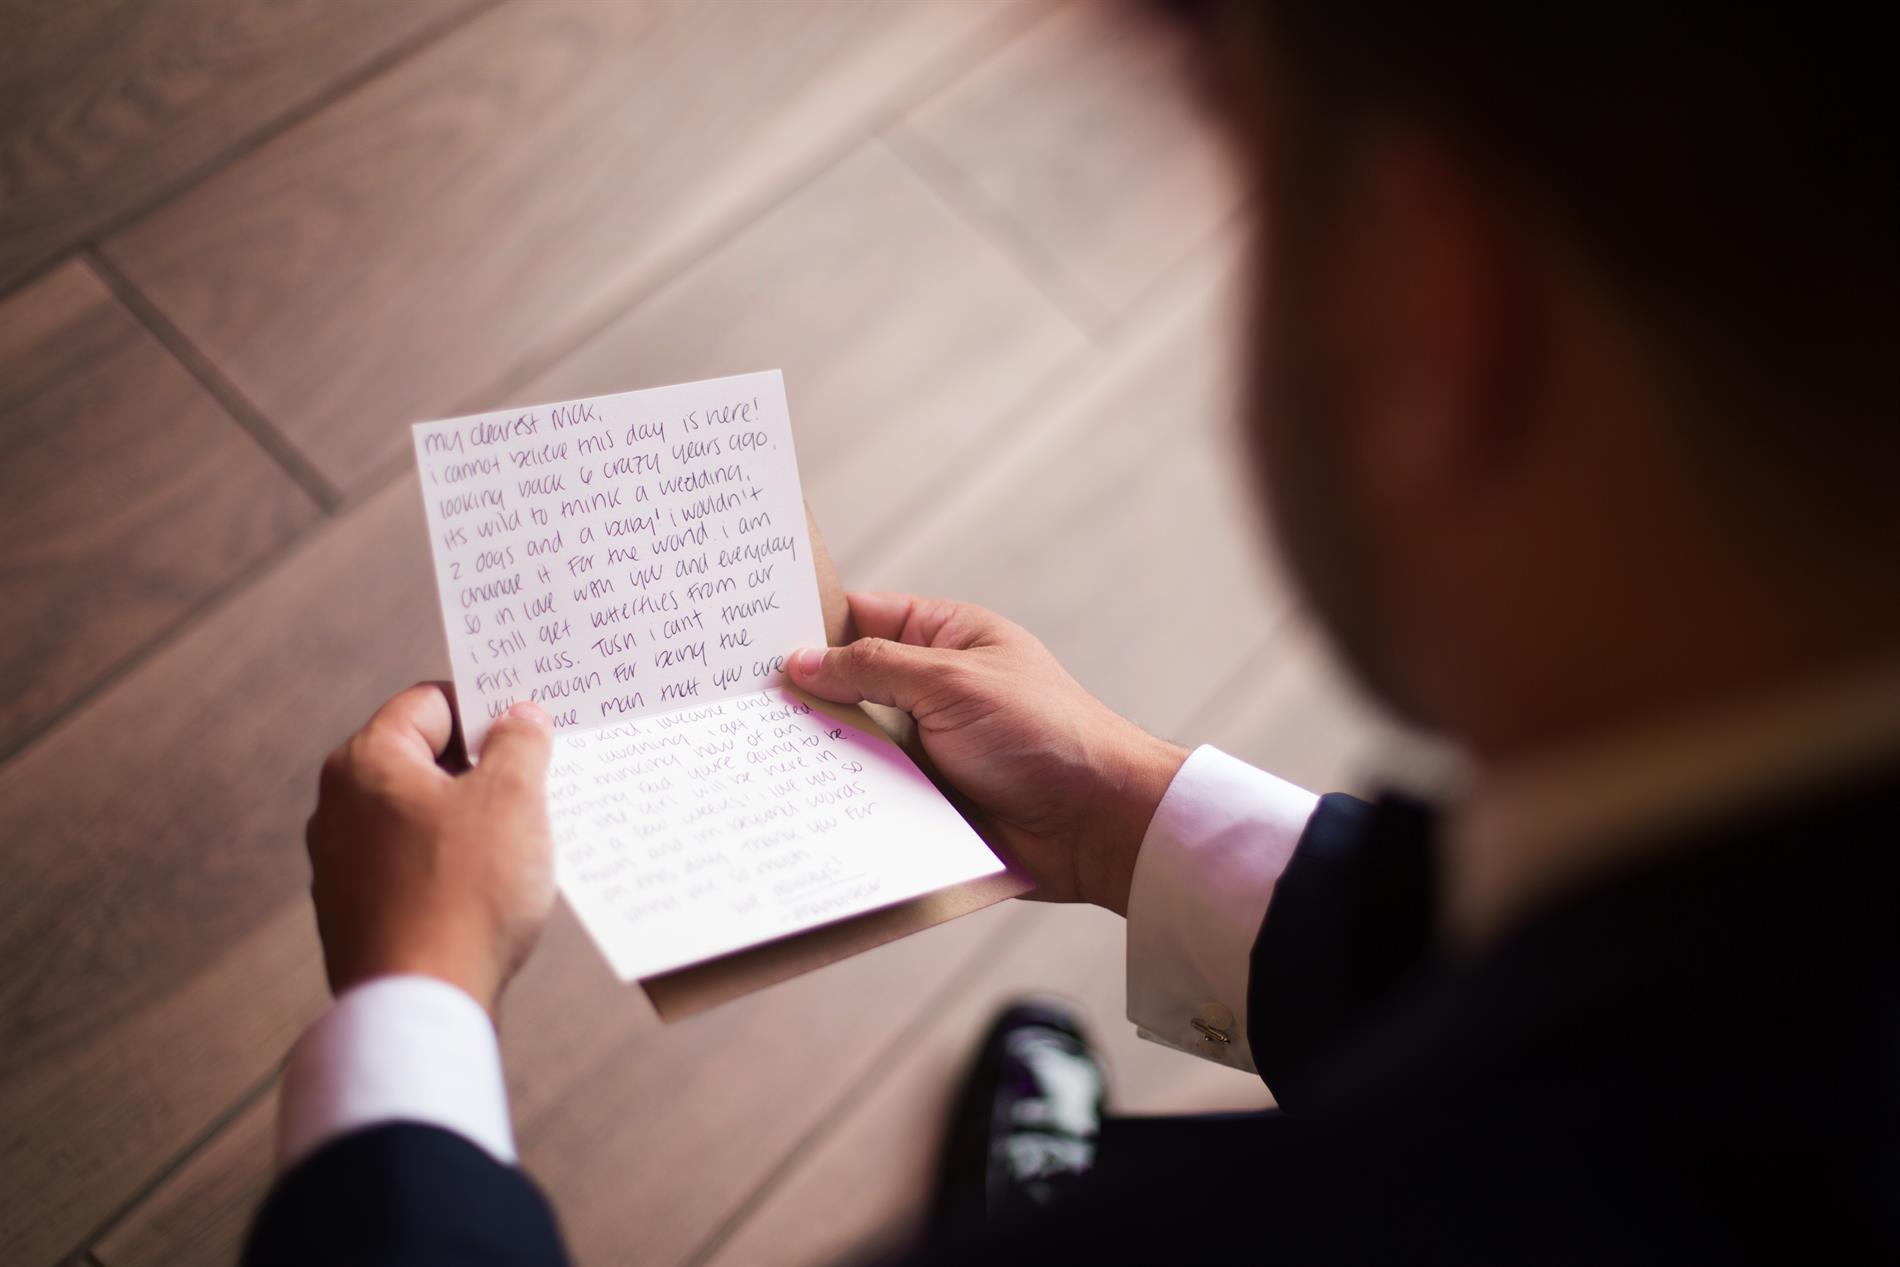 my dearest Nick,
i cannot believe this day is here!
looking back 6 crazy years ago,
its wild to think a wedding,
2 dogs and a baby! i wouldn't
change it for the world. i am
so in love with you and everyday
i still get butterflies from our
first kiss. Tush i can't thank
you enough for being the
man that you are
so kind, loveable and
laughing. i get teared
thinking how of an
amazing dad you're going to be.
our little girl will be here in
just a few weeks! i love you so
much and im beyond words
on this day. Thank you for
so much